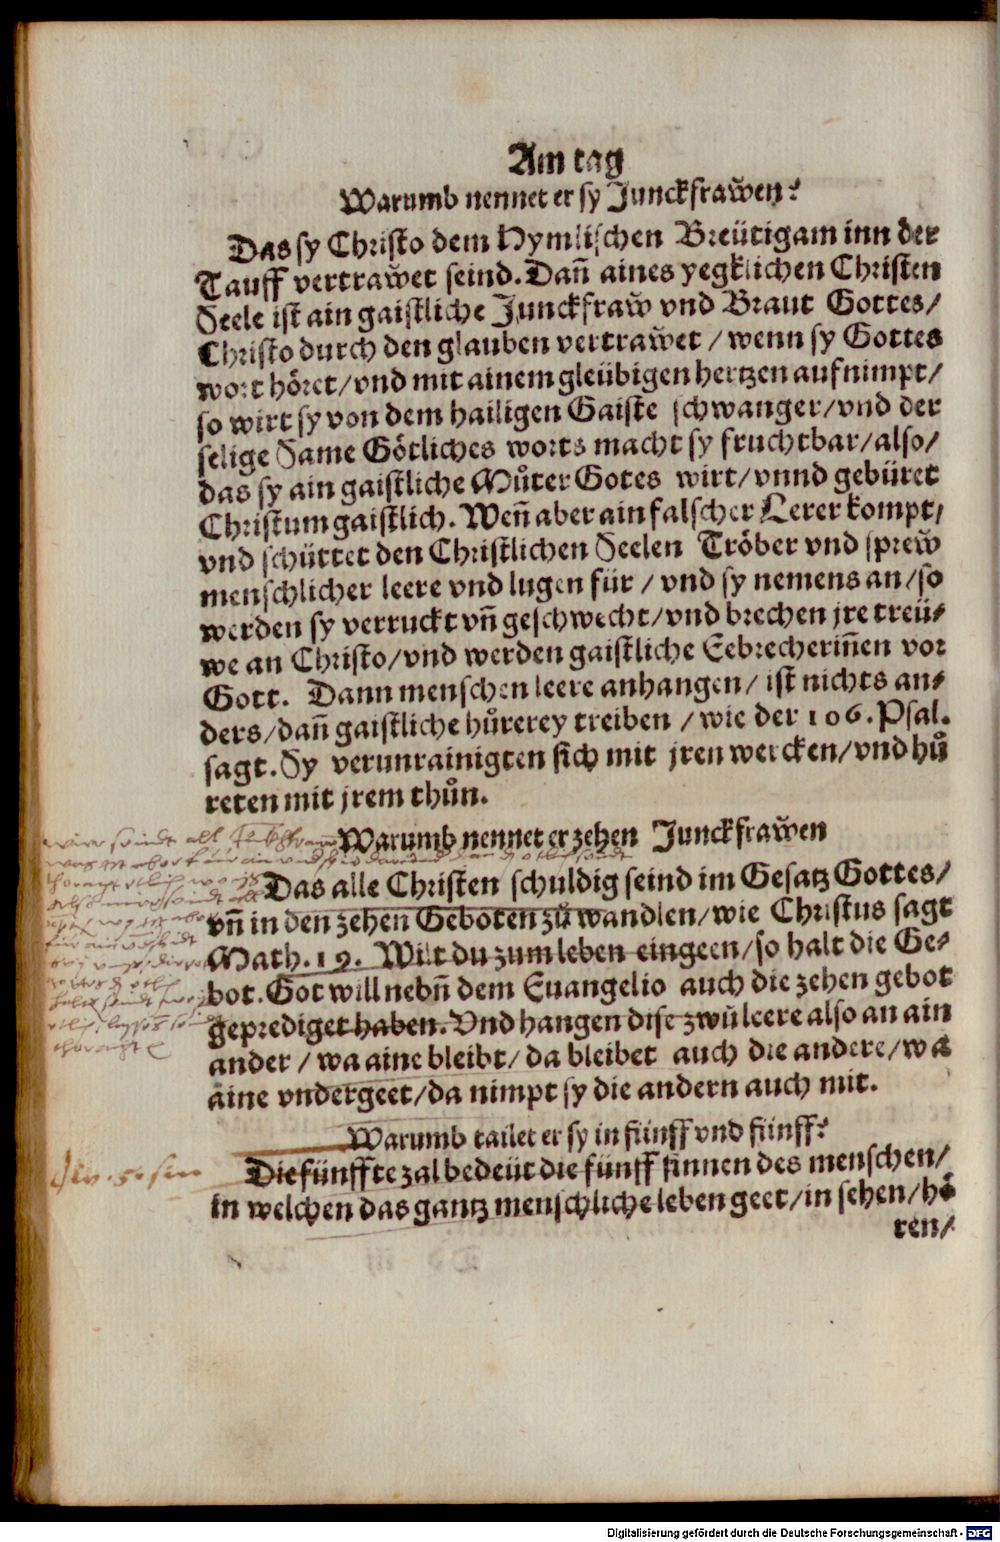 Am tag
Warumb nennet er sy Junckfraẅen?
Das sy Christo dem Hymlischen Breütigam inn der
Tauff vertraẅet seind. Dañ aines yegklichen Christen
Seele ist ain gaistliche Junckfraẅ vnd Braut Gottes/
Christo durch den glauben vertraẅet / wenn sy Gottes
wort höret/vnd mit ainem gleübigen hertzen aufnimpt/
so wirt sy von dem hailigen Gaiste schwanger/vnd der
selige Same Götliches worts macht sy fruchtbar/also/
das sy ain gaistliche Můter Gotes wirt/vnnd gebüret
Christum gaistlich. Weñ aber ain falscher Lerer kompt/
vnd schüttet den Christlichen Seelen Tröber vnd spreẅ
menschlicher leere vnd lugen für / vnd sy nemens an/so
werden sy verruckt vñ geschwecht/vnd brechen jre treü⸗
we an Christo/vnd werden gaistliche Eebrecheriñen vor
Gott. Dann menschen leere anhangen/ ist nichts an⸗
ders/dañ gaistliche hůrerey treiben / wie der 106. Psal.
sagt. Sy verunrainigten sich mit jren wercken/vnd hů
reten mit jrem thůn.
Warumb nennet er zehen Junckfraẅen
Das alle Christen schuldig seind im Gesatz Gottes/
vñ in den zehen Geboten zů wandlen/wie Christus sagt
Math. 19. Wilt du zum leben eingeen/so halt die Ge⸗
bot. Got will nebñ dem Euangelio auch die zehen gebot
geprediget haben. Vnd hangen dise zwů leere also an ain
ander / wa aine bleibt/ da bleibet auch die andere/wa
aine vndergeet/da nimpt sy die andern auch mit.
Warumb tailet er sy in fünff vnd fünff?
Die fünffte zal bedeüt die fünff sinnen des menschen/
in welchen das gantz menschliche leben geet/in sehen/hö
ren/
Digitalisierung gefördert durch die Deutsche Forschungsgemeinschaft - DFG